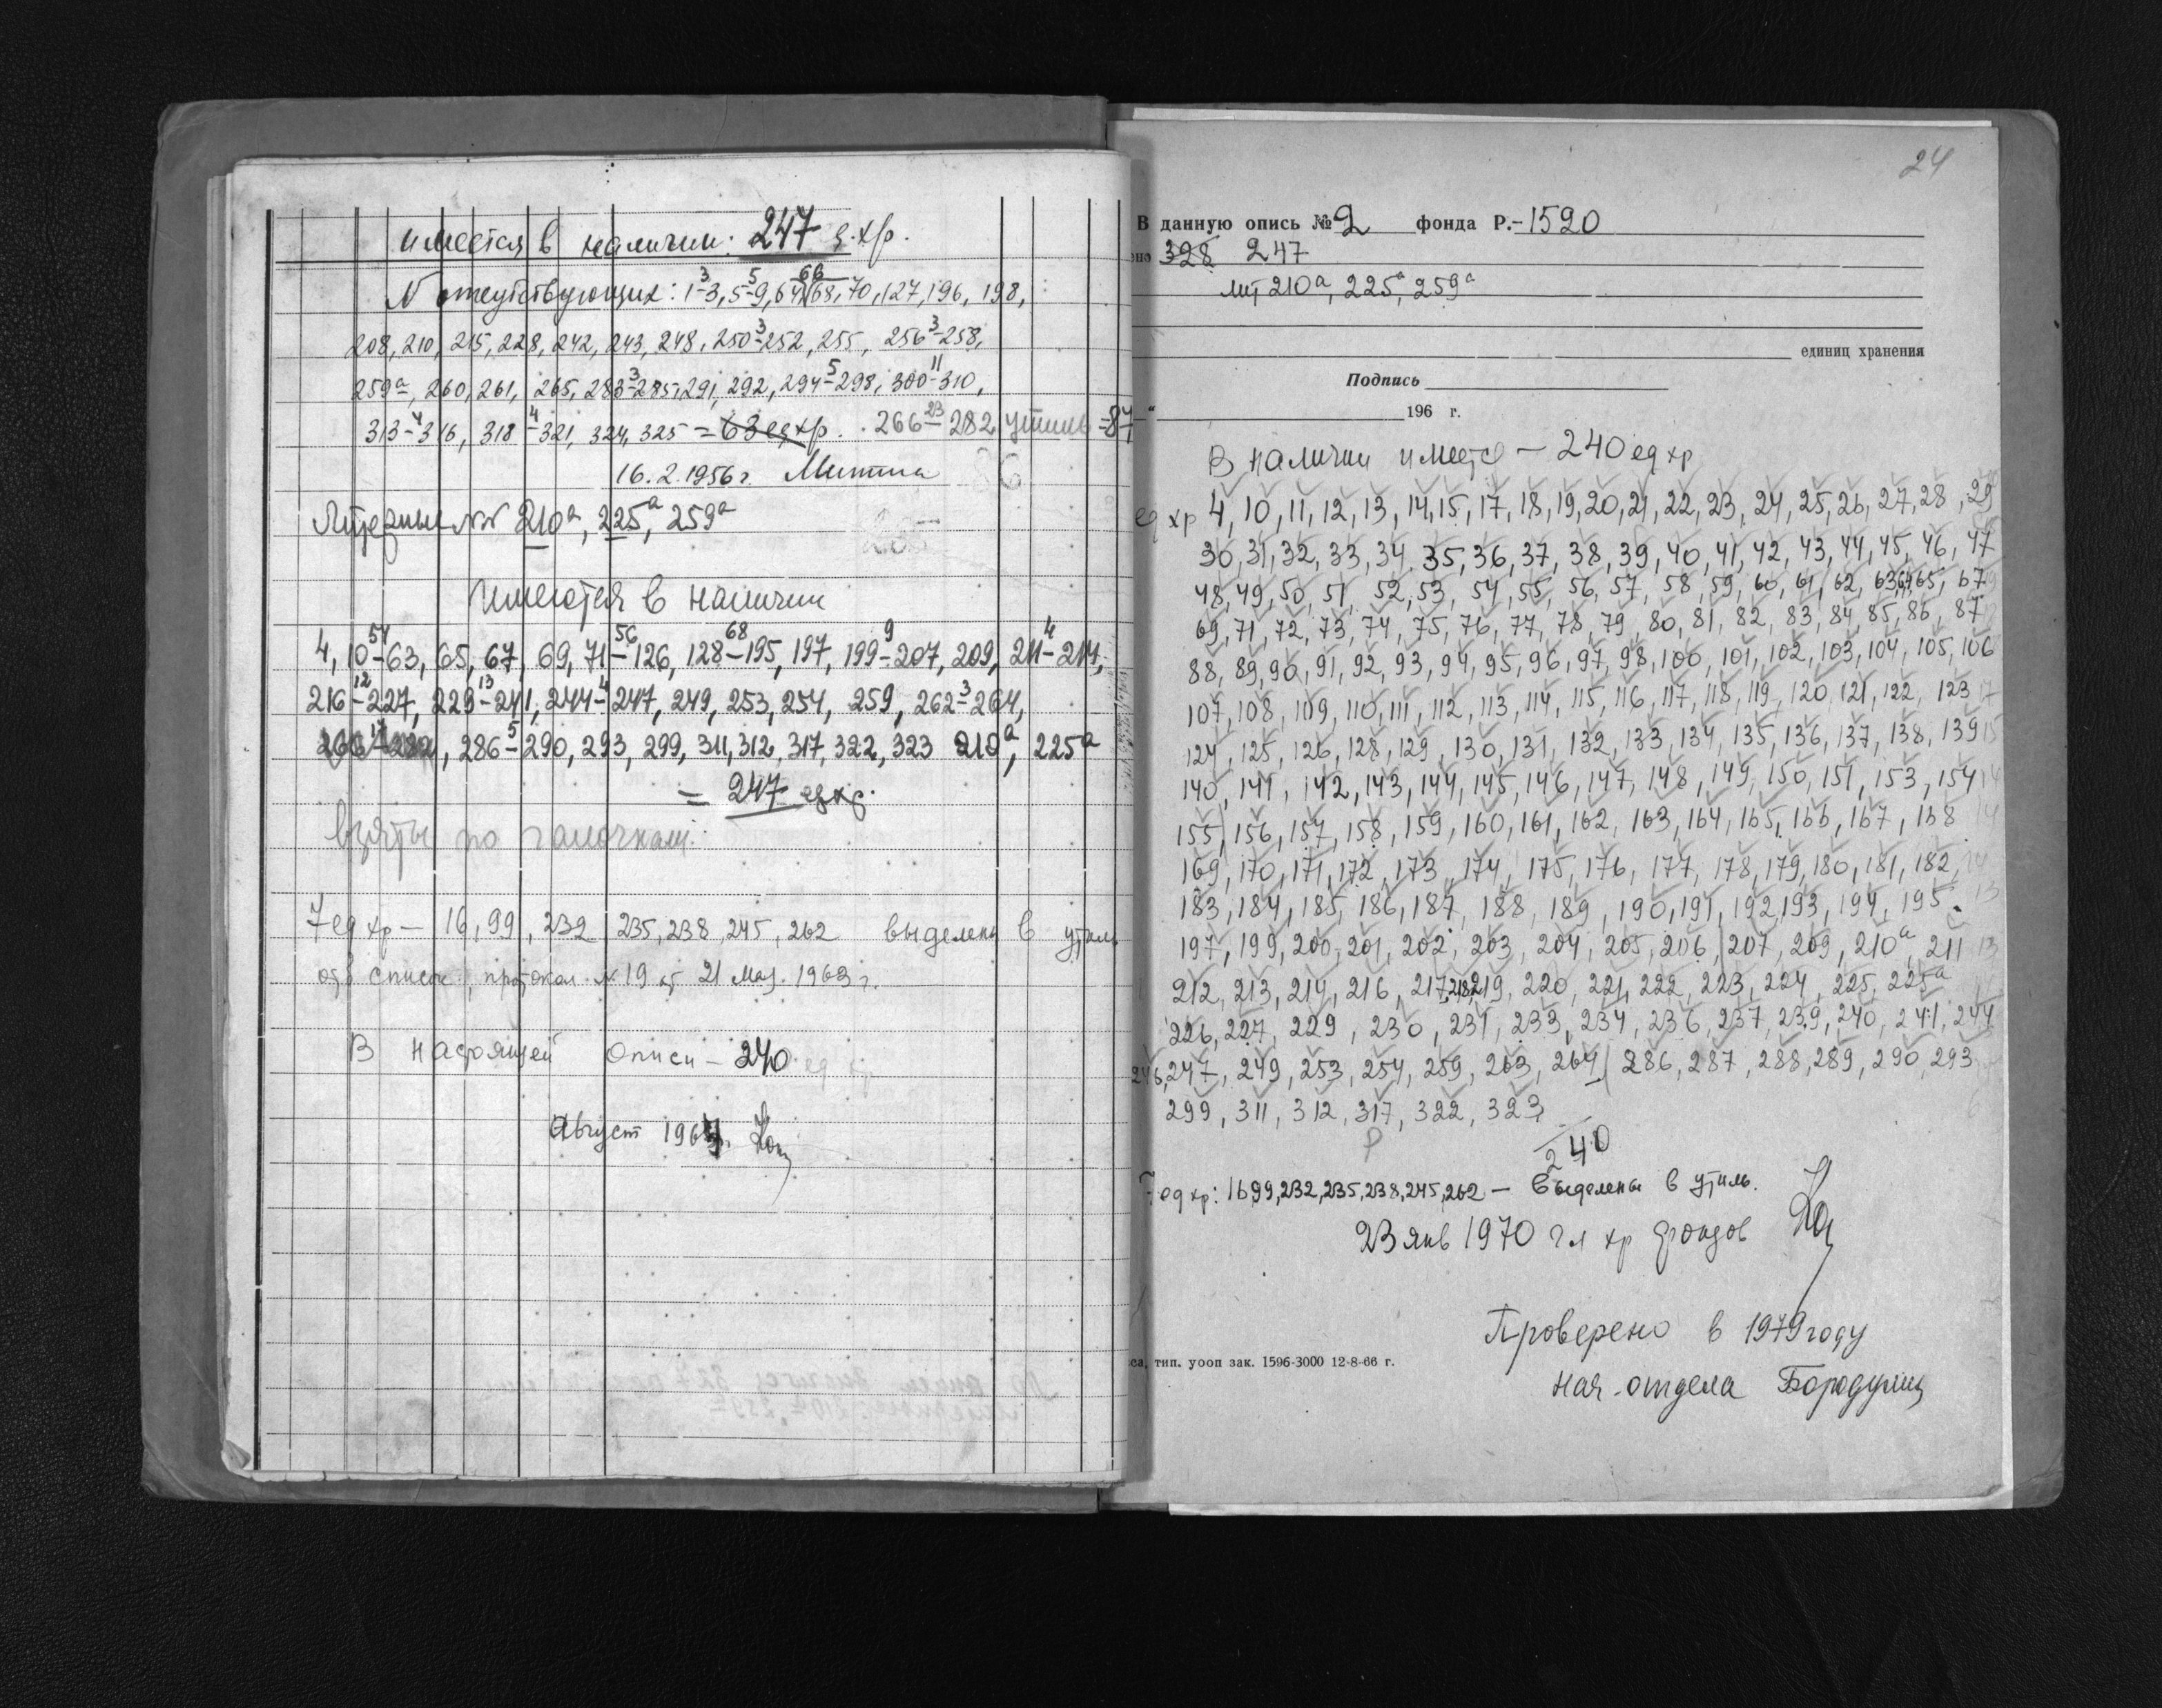 имеется в наличии: 247 е.хр.
№ отсутствующих: 1-3, 5-9, 64, 66, 68, 70, 127, 196, 198,
208, 210, 215, 228, 242, 243, 248, 250-252, 255, 256-258,
259а, 260, 261, 265, 283-285, 291, 292, 294-298, 300-310,
313-316, 318-321, 324, 325 = 63 ед хр. 266-282 утиль
16.2.1956 г. Митина
Литерные №№ 210а, 225а, 259а
Имеются в наличии
4, 10-63, 65, 67, 69, 71-126, 128-195, 197, 199-207, 209, 211-214,
216-227, 229-241, 244-247, 249, 253, 254, 259, 262-264,
266-282, 286-290, 293, 299, 311, 312, 317, 322, 323 210а, 225а
= 247 ед хр.
взяты по галочкам.
7 ед хр - 16, 99, 232, 235, 238, 245, 262 выделены в утиль
протокол № 19 от 21 мая 1963 г.
В настоящей описи - 240 ед хр
Август
24
В данную опись № 2 фонда Р.-1590
328 247
лит 210а, 225а, 259а
единиц хранения
Подпись
196 г.
В наличии имеется - 240 ед хр
ед хр 4, 10, 11, 12, 13, 14, 15, 17, 18, 19, 20, 21, 22, 23, 24, 25, 26, 27, 28, 29
30, 31, 32, 33, 34, 35, 36, 37, 38, 39, 40, 41, 42, 43, 44, 45, 46, 47
48, 49, 50, 51, 52, 53, 54, 55, 56, 57, 58, 59, 60, 61, 62, 63, 64, 65, 67
69, 71, 72, 73, 74, 75, 76, 77, 78, 79, 80, 81, 82, 83, 84, 85, 86, 87
88, 89, 90, 91, 92, 93, 94, 95, 96, 97, 98, 100, 101, 102, 103, 104, 105, 106
107, 108, 109, 110, 111, 112, 113, 114, 115, 116, 117, 118, 119, 120, 121, 122, 123
124, 125, 126, 128, 129, 130, 131, 132, 133, 134, 135, 136, 137, 138, 139
140, 141, 142, 143, 144, 145, 146, 147, 148, 149, 150, 151, 153, 154
155, 156, 157, 158, 159, 160, 161, 162, 163, 164, 165, 166, 167, 168
169, 170, 171, 172, 173, 174, 175, 176, 177, 178, 179, 180, 181, 182
183, 184, 185, 186, 187, 188, 189, 190, 191, 192, 193, 194, 195.
197, 199, 200, 201, 202, 203, 204, 205, 206, 207, 209, 210а, 211
212, 213, 214, 216, 217, 218, 219, 220, 221, 222, 223, 224, 225, 225а
226, 227, 229, 230, 231, 233, 234, 236, 237, 239, 240, 241, 244
246, 247, 249, 253, 254, 259, 263, 264, 286, 287, 288, 289, 290, 293
299, 311, 312, 317, 322, 323
240
7 ед хр: 16, 99, 232, 235, 238, 245, 262 - Выделены в утиль.
23 янв 1970 гл хр фондов
Проверено в 1979 году
тип. уооп зак. 1596-3000 12-8-66 г.
Нач. отдела